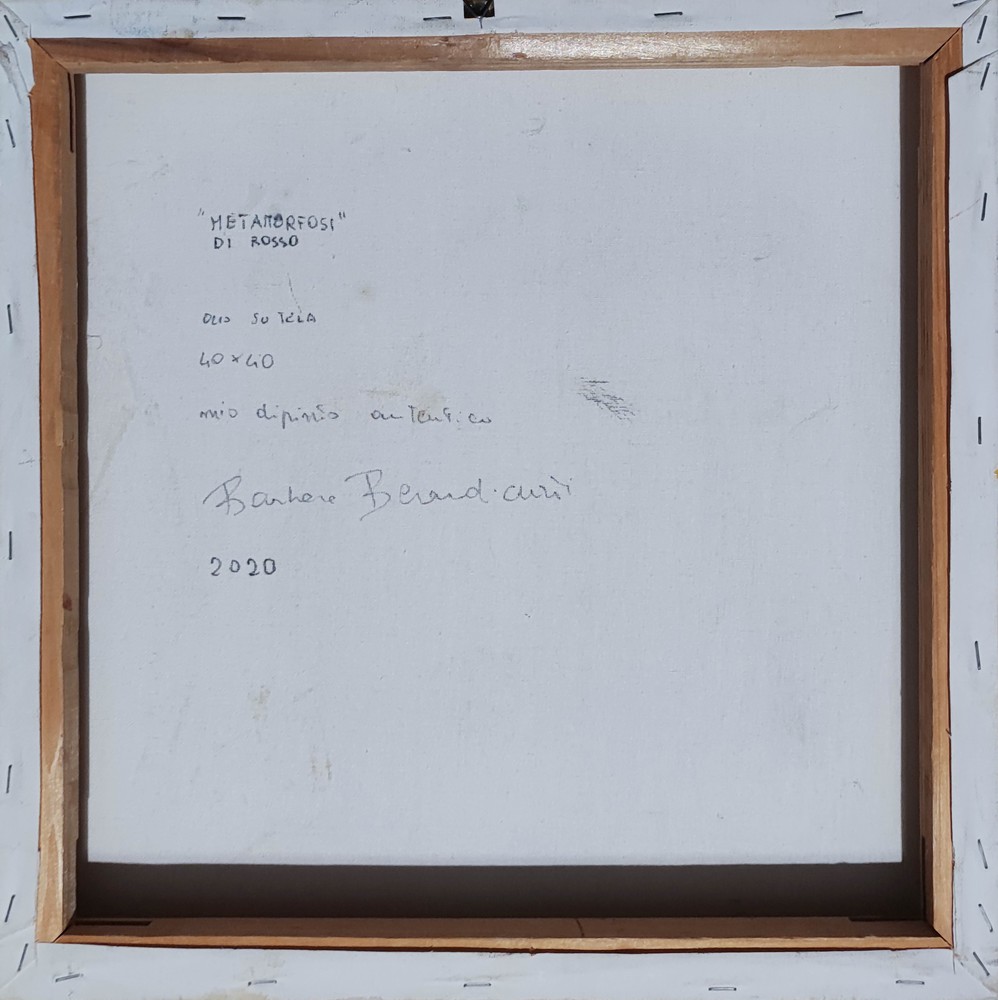 "METAMORFOSI"
DI ROSSO
OLIO SU TELA
40×40
mio dipinto autentico
Barbara
2020